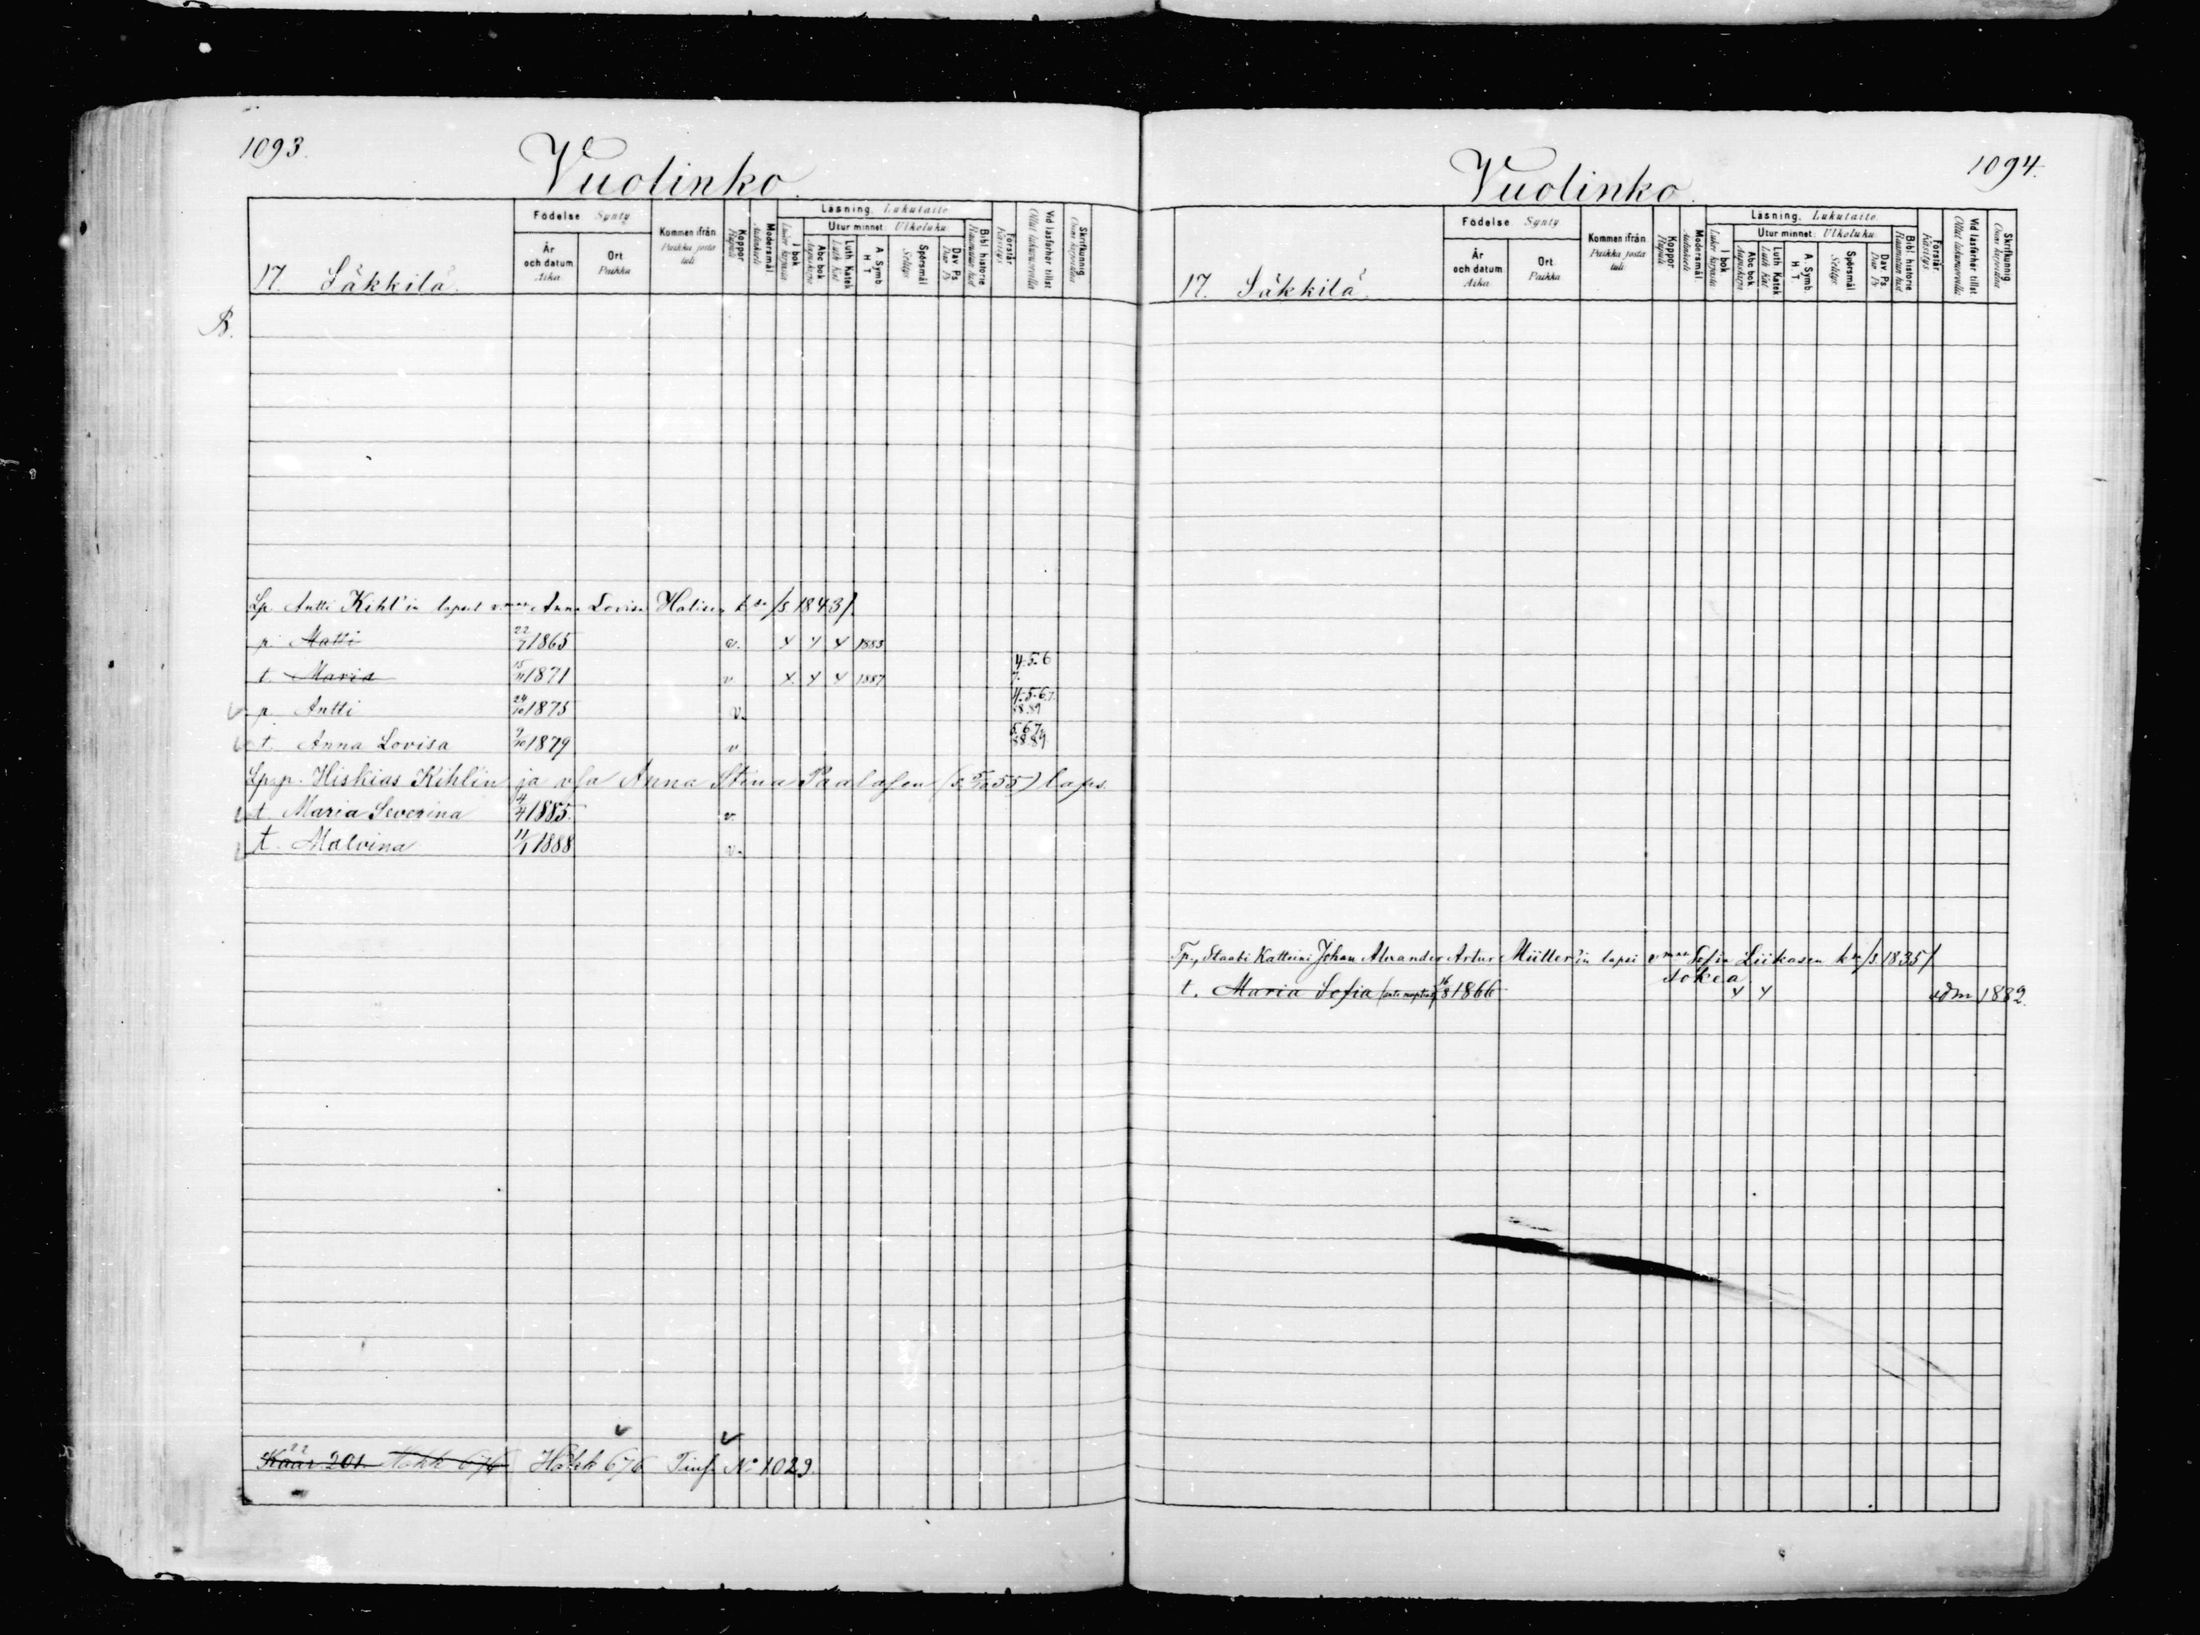 1093.
Vuolinko.
17. Säkkilä.
Födelse Synty
År och datum Aika
Ort Paikka
Kommen ifrån Paikka josta tuli
Koppor Rupuli
Modersmål
Läsning. Lukutaito.
I bok
Utur minnet: Ulkoluku.
Abc bok
Luth Katek
A. Symb. H. T.
Spörsmål Selitys
Dav. Ps.
Bibl. historie
Förstår Käsitys
Vid läsförhör tillst.
Skrifkunnig
B.
Lp. Antti Kihl'in lapset Anna Lovisa Halisen /s. 1843/
p. Matti 22/7 1865 v. 1883
t. Maria 15/11 1871 v 1887 4.5.6 7.
p. Antti 24/10 1875 v. 4.5.6.7. 88.89
t. Anna Lovisa 9/10 1879 v 5.6.7. 88.89
Lp.p. Hiskias Kihlin ja vsa Anna Stina Paalasen 55) laps.
t. Maria Severina 4/4 1885. v.
t. Malvina 11/1 1888 v.
Käär 201. Hakk 676 Hakk 676 Tinf. No 1029.
1094.
Vuolinko.
17. Säkkilä.
Födelse Synty
År och datum Aika
Ort Paikka
Kommen ifrån Paikka josta tuli
Koppor Rupuli
Modersmål.
Läsning. Lukutaito.
I bok
Utur minnet: Ulkoluku.
Abc bok
Luth Katek
A. Symb. H. T.
Spörsmål Selitys
Dav. Ps.
Bibl. historie
Förstår Käsitys
Vid läsförhör tillst.
Skrifkunnig
Johan Alexander Artur Müller'in lapsi Sofia Liikasen /s 1835/
sokea
t. Maria Sofia 16/8 1866 adm 1882.